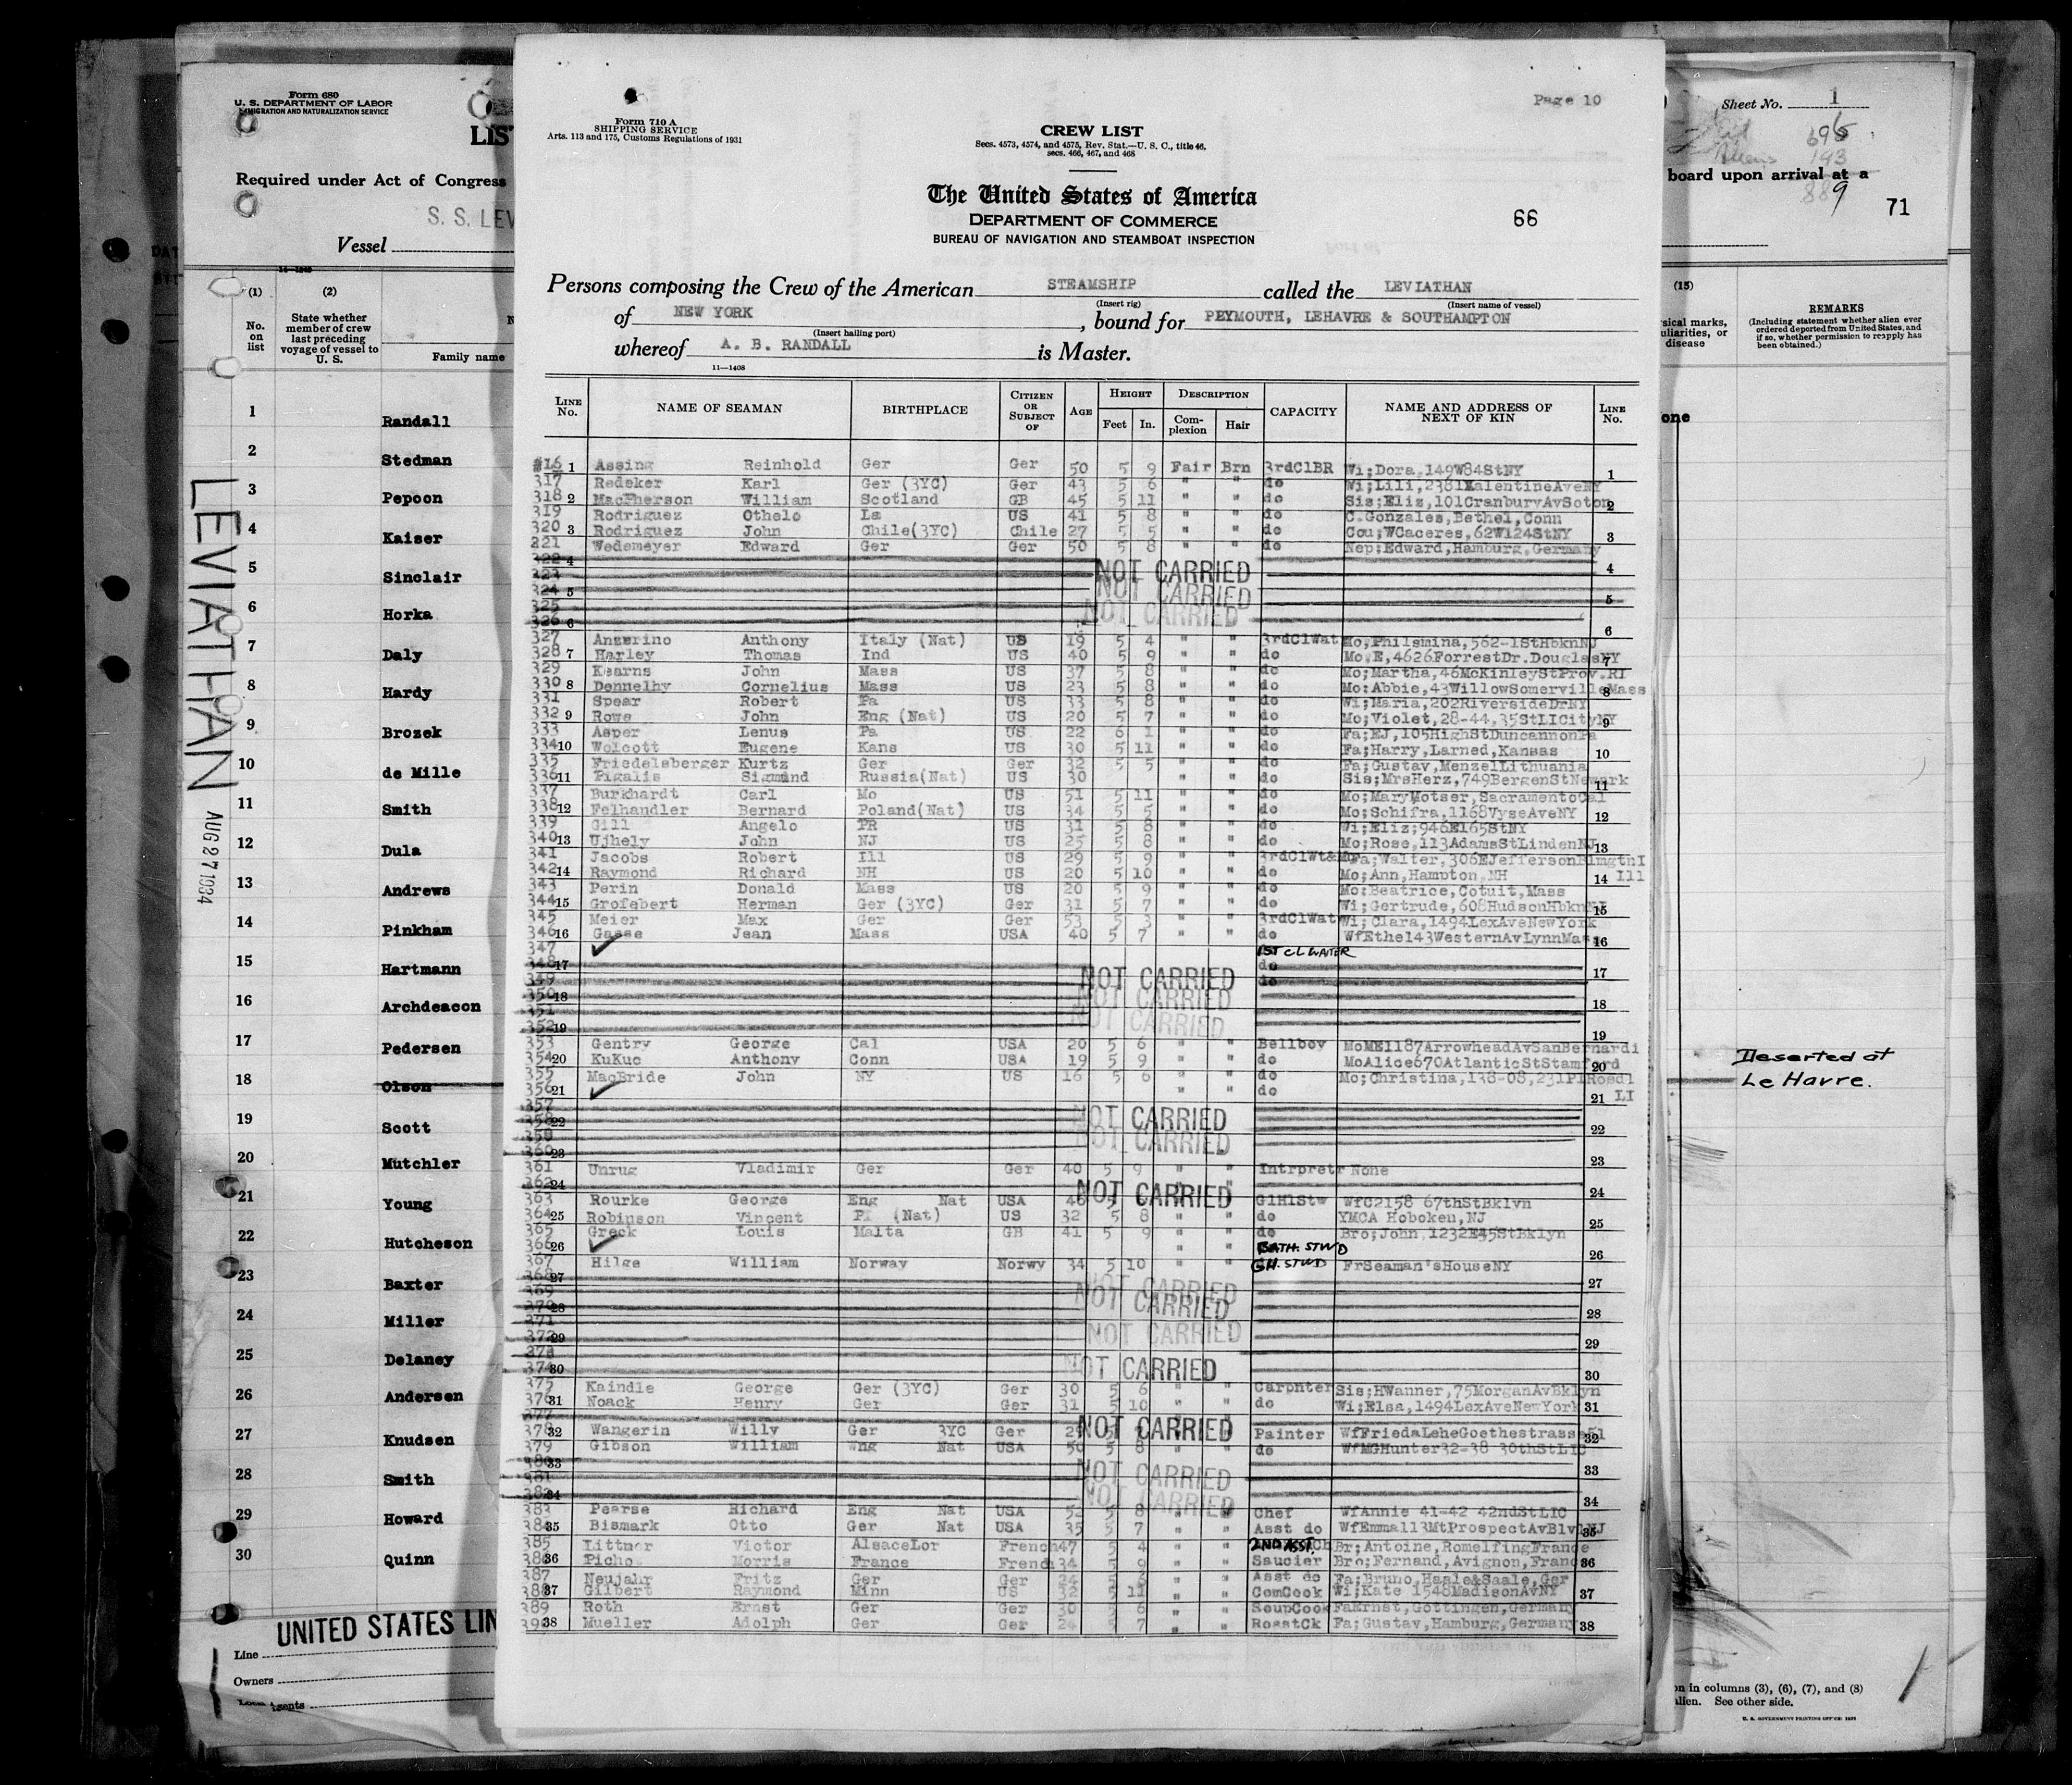 Form 680
U. S. DEPARTMENT OF LABOR
IMMIGRATION AND NATURALIZATION SERVICE
LIS
Required under Act of Congress
S. S. LEV
Vessel
(1) (2)
No. on list
State whether member of crew last preceding voyage of vessel to U. S.
Family name
1 Randall
2 Stedman
3 Pepoon
4 Kaiser
5 Sinclair
6 Horka
7 Daly
8 Hardy
9 Brozek
10 de Mille
11 Smith
12 Dula
13 Andrews
14 Pinkham
15 Hartmann
16 Archdeacon
17 Pedersen
18 Olson
19 Scott
20 Mutchler
21 Young
22 Hutcheson
23 Baxter
24 Miller
25 Delaney
26 Andersen
27 Knudsen
28 Smith
29 Howard
30 Quinn
UNITED STATES LIN
Line
Owners
Local Agents
LEVIATHAN
AUG 27 1934
Page 10
Form 710 A
SHIPPING SERVICE
Arts. 113 and 175, Customs Regulations of 1931
CREW LIST
Secs. 4573, 4574, and 4575, Rev. Stat.—U. S. C., title 46,
secs. 466, 467, and 468
The United States of America
DEPARTMENT OF COMMERCE
BUREAU OF NAVIGATION AND STEAMBOAT INSPECTION
66
Persons composing the Crew of the American STEAMSHIP called the LEVIATHAN
(Insert rig) (Insert name of vessel)
of NEW YORK, bound for PEYMOUTH, LEHAVRE & SOUTHAMPTON
(Insert hailing port)
whereof A. B. RANDALL is Master.
11—1408
LINE No. NAME OF SEAMAN BIRTHPLACE CITIZEN OR SUBJECT OF AGE HEIGHT Feet In. DESCRIPTION Complexion Hair CAPACITY NAME AND ADDRESS OF NEXT OF KIN LINE No.
#16 1 Assing Reinhold Ger Ger 50 5 9 Fair Brn 3rdClBR Wi;Dora,149W84StNY 1
317 Redeker Karl Ger (3YC) Ger 43 5 6 " " do Wi;Lili,2381ValentineAveNY
318 2 MacPherson William Scotland GB 45 5 11 " " do Sis;Eliz,101CranburyAvSoton 2
319 Rodriguez Othelo La US 41 5 8 " " do C.Gonzales,Bethel,Conn
320 3 Rodriguez John Chile(3YC) Chile 27 5 5 " " do Cou;WCaceres,62W124StNY 3
221 Wedemeyer Edward Ger Ger 50 5 8 " " do Nep;Edward,Hamburg,Germany
322 4 NOT CARRIED 4
323
324 5 NOT CARRIED 5
325 NOT CARRIED
326 6 6
327 Anzerino Anthony Italy (Nat) US 19 5 4 " " 3rdClWat Mo,Philsmina,562-1StHbknNJ
328 7 Harley Thomas Ind US 40 5 9 " " do Mo.E,4626ForrestDr.DouglasNY 7
329 Kearns John Mass US 37 5 8 " " do Mo;Martha,46McKinleyStProv.RI
330 8 Dennelhy Cornelius Mass US 23 5 8 " " do Mo:Abbie,43WillowSomervilleMass 8
331 Spear Robert Pa US 33 5 8 " " do Wi;Maria,202RiversideDrNY
332 9 Rowe John Eng (Nat) US 20 5 7 " " do Mo;Violet,28-44,35StLICityNY 9
333 Asper Lenus Pa US 22 6 1 " " do Fa;EJ,105HighStDuncannonPa
334 10 Wolcott Eugene Kans US 30 5 11 " " do Fa;Harry,Larned,Kansas 10
335 Friedelsberger Kurtz Ger Ger 32 5 5 " " do Fa;Gustav,MenzelLithuania
336 11 Pigalis Sigmund Russia(Nat) US 30 " " do Sis;MrsHerz,749BergenStNewark 11
337 Burkhardt Carl Mo US 51 5 11 " " do Mo;MaryMotser,SacramentoCal
338 12 Felhandler Bernard Poland(Nat) US 34 5 5 " " do Mo;Schifra,1168VyseAveNY 12
339 Gill Angelo PR US 31 5 8 " " do Wi;Eliz;946E165StNY
340 13 Ujhely John NJ US 25 5 8 " " do Mo;Rose,113AdamsStLindenNJ 13
341 Jacobs Robert Ill US 29 5 9 " " 3rdClWt& Fa;Walter,306EJeffersonBlmgthI
342 14 Raymond Richard NH US 20 5 10 " " do Mo;Ann,Hampton,NH 14 Ill
343 Perin Donald Mass US 20 5 9 " " do Mo:Beatrice,Cotuit,Mass
344 15 Grofebert Herman Ger (3YC) Ger 31 5 7 " " do Wi;Gertrude,608HudsonHbknNJ 15
345 Meier Max Ger Ger 53 5 3 " " 3rdClWat Wi;Clara,1494LexAveNewYork
346 16 Gasse Jean Mass USA 40 5 7 " " do WfEthel43WesternAvLynnMas 16
347 ✓ 1ST CL WAITER
348 17 do 17
349 NOT CARRIED do
350 18 NOT CARRIED 18
351 NOT CARRIED
352 19 19
353 Gentry George Cal USA 20 5 6 " " Bellboy MoME1187ArrowheadAvSanBernardi
354 20 KuKuc Anthony Conn USA 19 5 9 " " do MoAlice670AtlanticStStamford 20
355 MacBride John NY US 16 5 6 " " do Mo;Christina,138-08,231PlRosdl
356 21 ✓ " " do 21 LI
357
358 22 NOT CARRIED 22
359 NOT CARRIED
360 23 23
361 Unrug Vladimir Ger Ger 40 5 9 " " Intrpretr None
362 24 NOT CARRIED 24
363 Rourke George Eng Nat USA 46 5 " " GlHlStw WfC2158 67thStBklyn
364 25 Robinson Vincent (Nat) US 32 5 8 " " do YMCA Hoboken,NJ 25
365 Greck Louis Malta GB 41 5 9 " " do Bro;John,1232E45StBklyn
366 26 ✓ " " BATH. STWD 26
367 Hilge William Norway Norwy 34 5 10 " " GH. STWD FrSeaman'sHouseNY
368 27 27
369 NOT CARRIED
370 28 NOT CARRIED 28
371
372 29 NOT CARRIED 29
373
374 30 NOT CARRIED 30
375 Kaindle George Ger (3YC) Ger 30 5 6 " " Carpnter Sis;HWanner,75MorganAvBklyn
376 31 Noack Henry Ger Ger 31 5 10 " " do Wi;Elsa,1494LexAveNewYork 31
377 NOT CARRIED
378 32 Wangerin Willy Ger 3YC Ger 29 " " Painter WfFriedaLeheGoethestrasse51 32
379 Gibson William Wng Nat USA 50 5 8 " " do WfMGHunter32-38 30thStLIC
380 33 NOT CARRIED 33
381
382 34 NOT CARRIED 34
383 Pearse Richard Eng Nat USA 52 5 8 " " Chef WfAnnie 41-42 42ndStLIC
384 35 Bismark Otto Ger Nat USA 35 5 7 " " Asst do WfEmma113MtProspectAvBlvlNJ 35
385 Littner Victor AlsaceLor French 47 5 4 " " 2ND ASST. Ch Br;Antoine,RomelfingFrance
386 36 Pichos Morris France French 34 5 9 " " Saucier Bro;Fernand,Avignon,Franc 36
387 Neujahr Fritz Ger Ger 24 5 6 " " Asst do Fa;Bruno,Haale&Saale,Ger
388 37 Gilbert Raymond Minn US 32 5 11 " " ComCook Wi;Kate 1548MadisonAvNY 37
389 Roth Ernst Ger Ger 30 5 6 " " SoupCook FaErnst,Gottingen,Germany
390 38 Mueller Adolph Ger Ger 24 5 7 " " RoastCk Fa;Gustav,Hamburg,Germany 38
Sheet No. 1
695
Aliens 193
889
board upon arrival at a
71
(15)
sical marks,
uliarities, or
disease
REMARKS
(Including statement whether alien ever ordered deported from United States, and if so, whether permission to reapply has been obtained.)
one
Deserted at
Le Havre.
on in columns (3), (6), (7), and (8)
alien. See other side.
U. S. GOVERNMENT PRINTING OFFICE: 1931